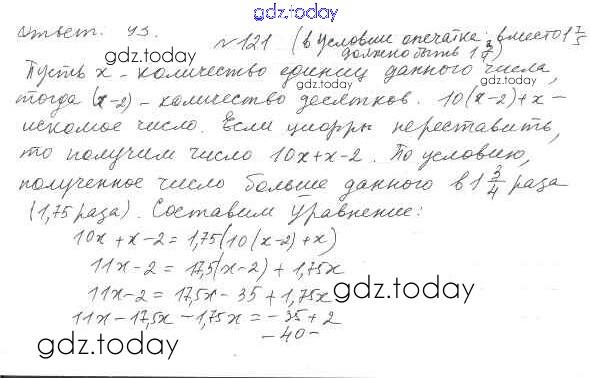 gdz.today
Ответ. 43.
№121 (в условии опечатка: вместо 1 7/5
должно быть 1 3/4)
Пусть x - количество единиц данного числа,
тогда (x-2) - количество десятков. 10(x-2)+x -
искомое число. Если цифры переставить,
то получим число 10x+x-2. По условию,
полученное число больше данного в 1 3/4 раза
(1,75 раза). Составим уравнение:
10x+x-2=1,75(10(x-2)+x)
11x-2=17,5(x-2)+1,75x
11x-2=17,5x-35+1,75x
11x-17,5x-1,75x=-35+2
-40-
gdz.today
gdz.today
gdz.today
gdz.today
gdz.today
gdz.today